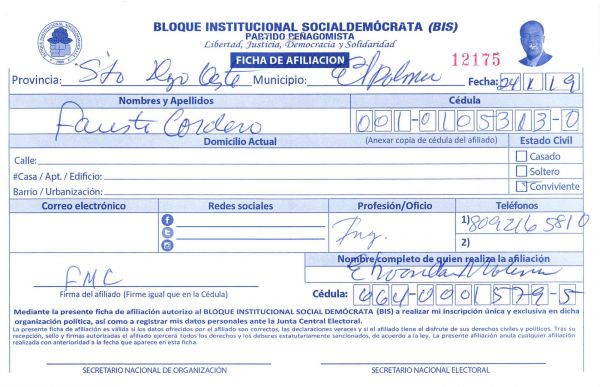 BLOQUE INSTITUCIONAL SOCIALDEMÓCRATA (BIS)
PARTIDO PEÑAGOMISTA
Libertad, Justicia, Democracia y Solidaridad
FICHA DE AFILIACION
12175
Provincia: Sto Dgo Oeste Municipio: Fecha: 24/1/19
Nombres y Apellidos Cédula
Fausto Cordero 001-0105313-0
Domicilio Actual (Anexar copia de cédula del afiliado) Estado Civil
Calle: Casado
#Casa / Apt. / Edificio: Soltero
Barrio / Urbanización: Conviviente
Correo electrónico Redes sociales Profesión/Oficio Teléfonos
Ing. 1) 8092165810
2)
Nombre completo de quien realiza la afiliación
FMC
Firma del afiliado (Firme igual que en la Cédula) Cédula: 064-0001579-5
Mediante la presente ficha de afiliación autorizo al BLOQUE INSTITUCIONAL SOCIAL DEMÓCRATA (BIS) a realizar mi inscripción única y exclusiva en dicha
organización política, así como a registrar mis datos personales ante la Junta Central Electoral.
La presente ficha de afiliación es válida si los datos ofrecidos por el afiliado son correctos, las declaraciones veraces y si el afiliado tiene el disfrute de sus derechos civiles y políticos. Tras su
recepción, sello y firmas autorizadas el afiliado ejercerá todos los derechos y los deberes estatutariamente sancionados, de acuerdo a la ley. La presente afiliación anula cualquier afiliación
realizada con anterioridad a la fecha que aparece en esta ficha.
SECRETARIO NACIONAL DE ORGANIZACIÓN SECRETARIO NACIONAL ELECTORAL